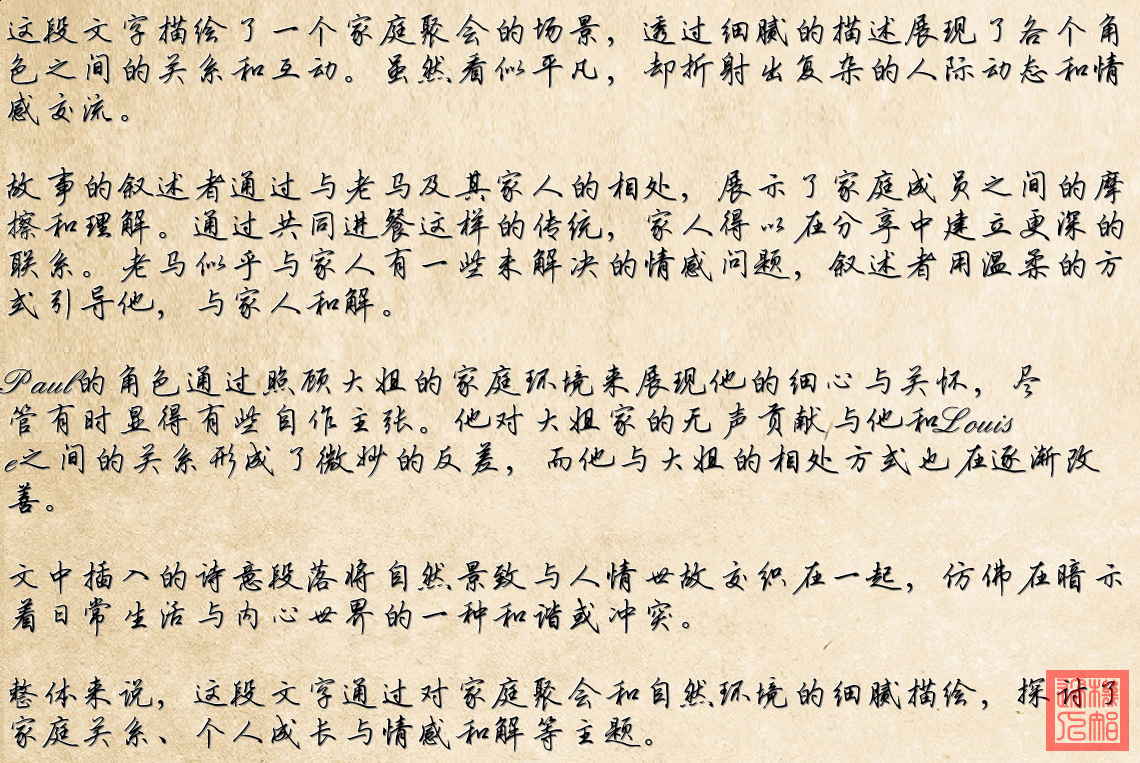 这段文字描绘了一个家庭聚会的场景，透过细腻的描述展现了各个角
色之间的关系和互动。虽然看似平凡，却折射出复杂的人际动态和情
感交流。
故事的叙述者通过与老马及其家人的相处，展示了家庭成员之间的摩
擦和理解。通过共同进餐这样的传统，家人得以在分享中建立更深的
联系。老马似乎与家人有一些未解决的情感问题，叙述者用温柔的方
式引导他，与家人和解。
Paul的角色通过照顾大姐的家庭环境来展现他的细心与关怀，尽
管有时显得有些自作主张。他对大姐家的无声贡献与他和Louis
e之间的关系形成了微妙的反差，而他与大姐的相处方式也在逐渐改
善。
文中插入的诗意段落将自然景致与人情世故交织在一起，仿佛在暗示
着日常生活与内心世界的一种和谐或冲突。
整体来说，这段文字通过对家庭聚会和自然环境的细腻描绘，探讨了
家庭关系、个人成长与情感和解等主题。